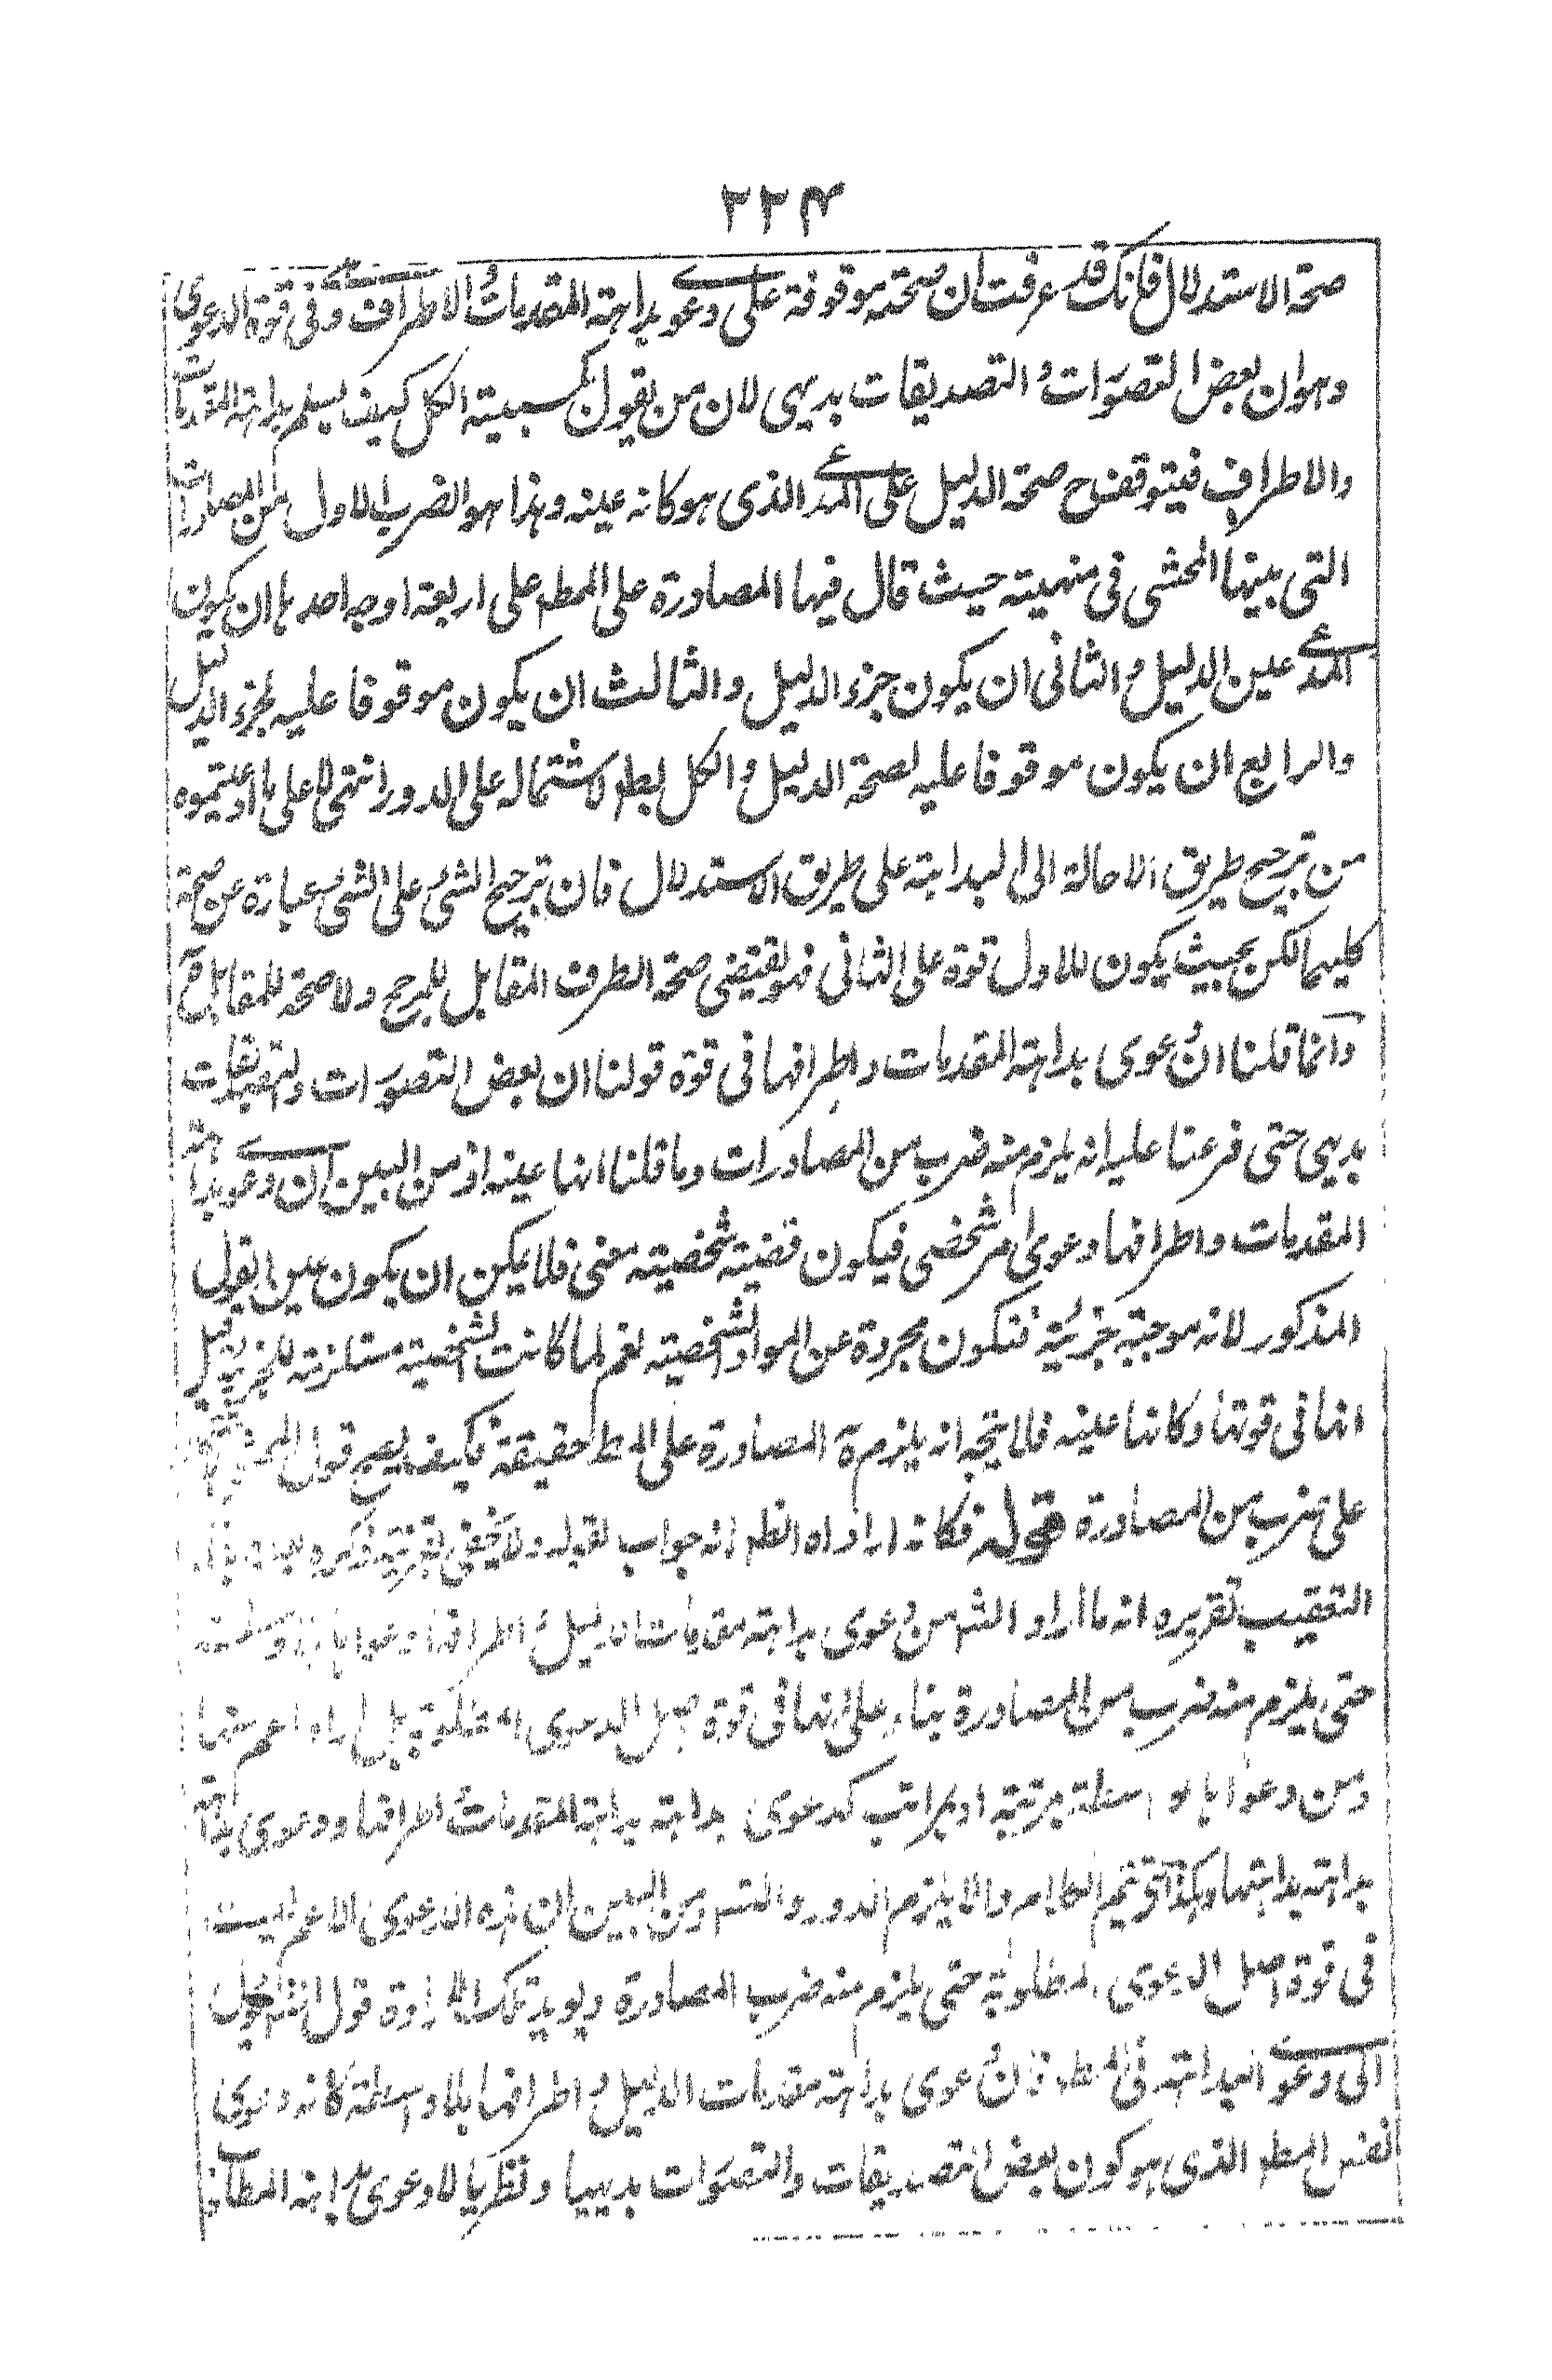 ۲۲۴
صحة الاستدلال فانك قد عرفت ان صحته موقوفة على دعوى بداهة المقدمات و الاطراف وهى فى قوة الدعوى
وهو ان بعض التصورات و التصديقات بديهى لان من يقول بكسبية الكل كيف يسلم بداهة المقدمات
والاطراف فيتوقف ح صحة الدليل على المدعى الذى هو كانه عينه وهذا هو الضرب الاول من المصادرات
التى بينها المحشى فى منهيته حيث قال فيها المصادرة على المطم على اربعة اوجه احدها ان يكون
المدعى عين الدليل و الثانى ان يكون جزء الدليل والثالث ان يكون موقوفا عليه لجزء الدليل
والرابع ان يكون موقوفا عليه لصحة الدليل و الكل بط لاشتماله على الدور انتهى لا على ما ادعيتموه
من ترجيح طريق الاحالة الى البداهة على طريق الاستدلال فان ترجيح الشئ على الشئ عبارة عن صحة
كليهما لكن بحيث يكون للاول قوة على الثانى فهو يقتضى صحة الطرف المقابل للمرجح ولا صحة للمقابل ح
وانما قلنا ان دعوى بداهة المقدمات واطرافها فى قوة قولنا ان بعض التصورات والتصديقات
بديهى حتى فرعنا عليه انه يلزم منه ضرب من المصادرات وما قلنا انها عينه اذ من البين ان دعوى بداهة
المقدمات واطرافها دعوى امر شخصى فيكون قضية شخصية معنى فلا يمكن ان يكون عين القول
المذكور لانه موجبة جزئية فتكون مجردة عن المواد الشخصية نعم لما كانت الشخصية مستلزمة للجزئية قيل
انها فى قوتها وكانها عينه فلا يتجه انه يلزم ح المصادرة على المط حقيقة فكيف يصح قول
على ضرب من المصادرة قوله فكانه اراد اه الظم انه جواب لقوله ولا يخفى بقرينة ذكره
التعقيب تقريره انه ما اراد الشه من دعوى بداهة مقدمات الدليل و اطرافها
حتى يلزم منه ضرب من المصادرة بناء على انها فى قوة اصل الدعوى المطلوبة بل اراد اعم منها
ومن دعواها بواسطة مرتبة او بمراتب كدعوى بداهة بداهة المقدمات و اطرافها ودعوى بداهة
بداهة بداهتها وهكذا حتى يتم الكلام والا يلزم الدور والتس ومن البين ان هذه الدعوى الاعم ليست
فى قوة اصل الدعوى المطلوبة حتى يلزم منه ضرب المصادرة ويؤيد تلك الارادة قول الشه
الى دعوى البداهة فى فان دعوى بداهة مقدمات الدليل و اطرافها بلا واسطة كانه دعوى
نفس المطم الذى هو كون بعض التصديقات والتصورات بديهيا ونظريا لا دعوى بداهة المطم